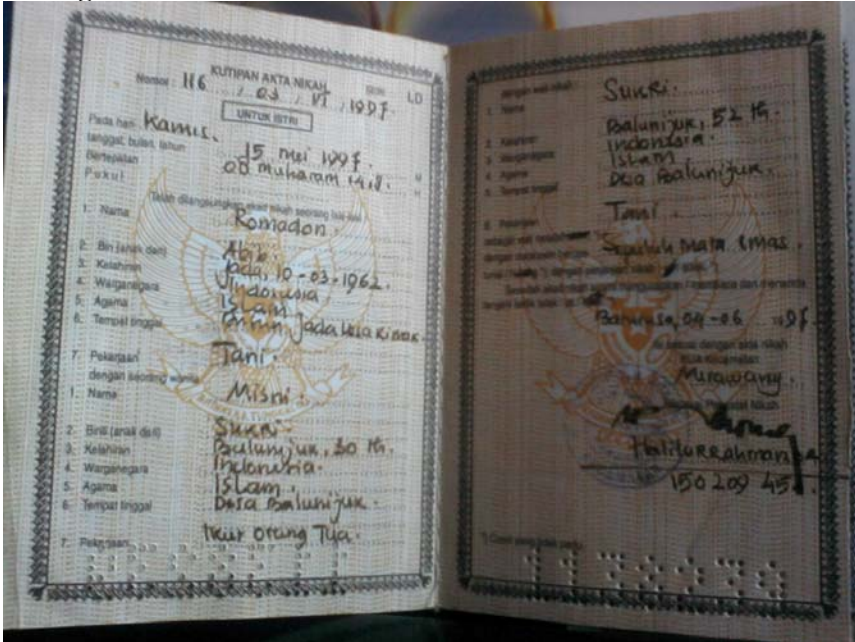 KUTIPAN AKTA NIKAH
LD
Nomor : 116 / 03 / VI / 1997.
UNTUK ISTRI
Pada hari Kamis.
tanggal, bulan, tahun 15 mei 1997. M
Bertepatan 08 muharam 1418. H
Pukul
Telah dilangsungkan akad nikah seorang laki-laki
1. Nama Romadon.
2. Bin (anak dari) Abib.
3. Kelahiran Jada, 10-03-1962.
4. Warganegara Indonesia.
5. Agama Islam.
6. Tempat tinggal Jada Desa
7. Pekerjaan Tani.
dengan seorang wanita
1. Nama Misni.
2. Binti (anak dari) Sukri.
3. Kelahiran Balunijuk, 30 th.
4. Warganegara Indonesia.
5. Agama Islam.
6. Tempat tinggal Desa Balunijuk.
7. Pekerjaan Ikut Orang Tua.
dengan wali nikah :
1. Nama Sukri.
2. Kelahiran Balunijuk, 52 th.
3. Warganegara Indonesia.
4. Agama Islam
5. Tempat tinggal Desa Balunijuk.
6. Pekerjaan Tani.
sebagai wali nasab
dengan maskawin berupa Sepuluh Mata Emas.
tunai
04-06 1997.
dengan akta nikah
KUA Kecamatan
Merawang.
Pegawai Pencatat Nikah
Halilurrahman
150 209 45
*) Coret yang tidak perlu